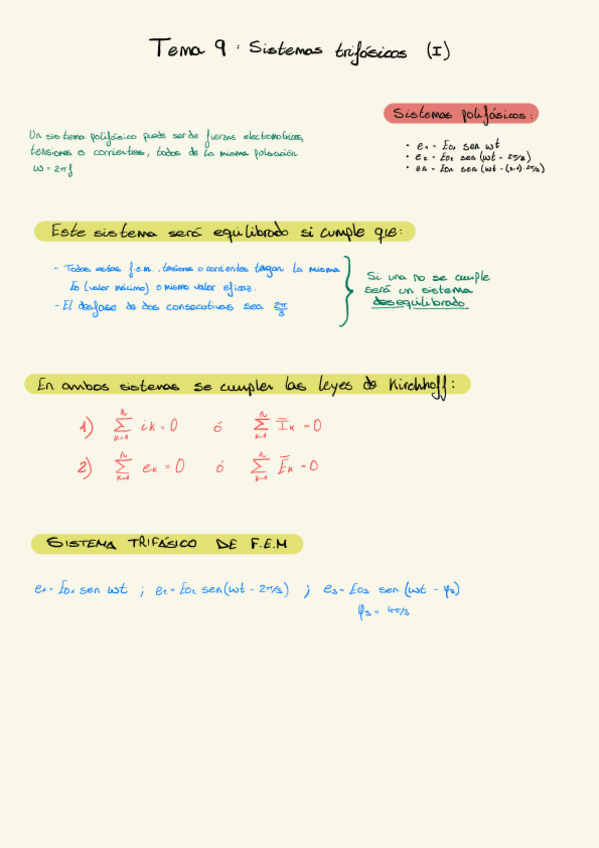 Tema 9: Sistemas trifásicos (I)
Sistemas polifásicos:
Un sistema polifásico puede ser de fuerzas electromotrices,
tensiones o corrientes, todos de la misma pulsación
ω = 2πf
• e1 = E01 sen ωt
• e2 = E02 sen (ωt - 2π/3)
• en = E0n sen (ωt - (n-1)·2π/3)
Este sistema será equilibrado si cumple que:
- Todas estas f.e.m., tensiones o corrientes tengan la misma
E0 (valor máximo) o mismo valor eficaz.
- El desfase de dos consecutivas sea 2π/3
Si una no se cumple
será un sistema
desequilibrado
En ambos sistemas se cumplen las leyes de Kirchhoff:
1) ∑ᴺₖ₌₁ ik = 0 ó ∑ᴺₖ₌₁ Īk = 0
2) ∑ᴺₖ₌₁ ek = 0 ó ∑ᴺₖ₌₁ Ēk = 0
SISTEMA TRIFÁSICO DE F.E.M
e1 = E01 sen ωt ; e2 = E02 sen(ωt - 2π/3) ; e3 = E03 sen (ωt - φ3)
φ3 = 4π/3